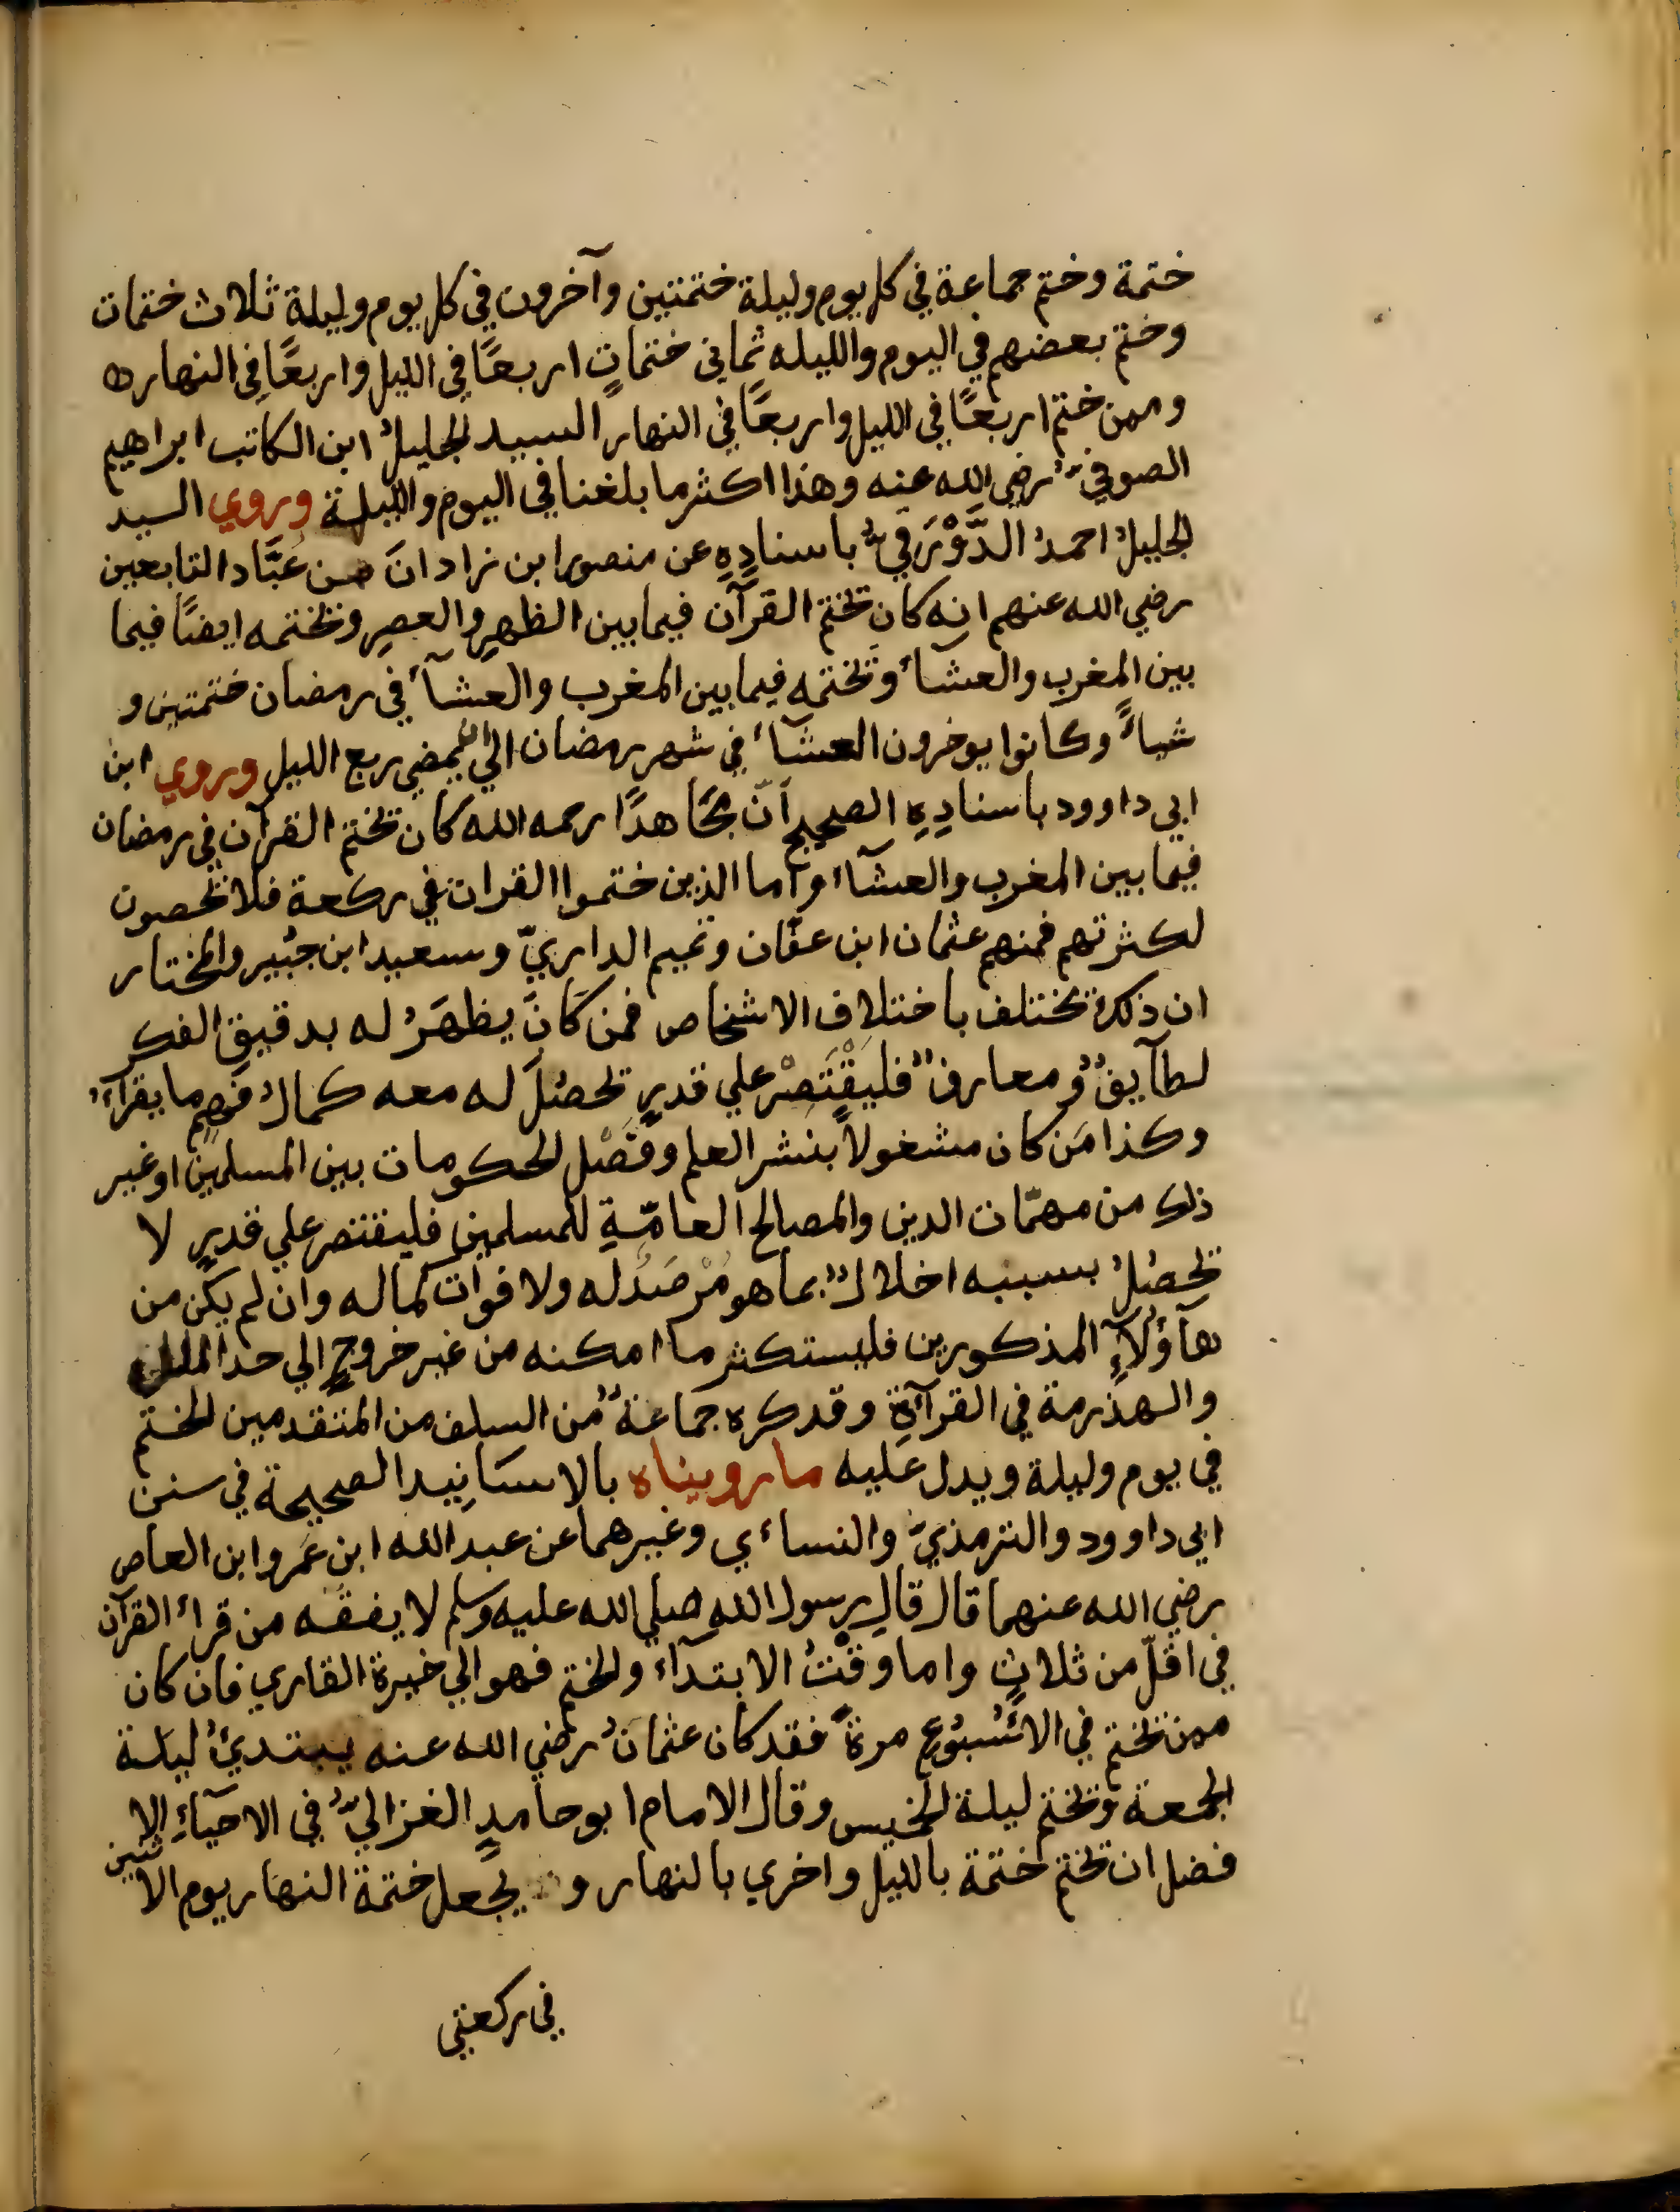 ختمة وختم جماعة في كل يوم وليلة ختمتين وآخرون في كل يوم وليلة ثلاث ختمات
وختم بعضهم في اليوم والليله ثماني ختماتٍ اربعًا في الليل واربعًا في النهار ه
وممن ختم اربعًا في الليل واربعًا في النهار السيد الجليلُ ابن الكاتب ابراهيم
الصوفيُّ رضي الله عنه وهذا اكثر ما بلغنا في اليوم والليلة وروي السيد
الجليلُ احمدُ الدَّوْرَقيُّ باسنادِهِ عن منصور ابن زادانَ من عُبَّاد التابعين
رضي الله عنهم انه كان يختم القرآن فيما بين الظهرِ والعصرِ ويختمه ايضًا فيما
بين المغربِ والعشاءِ ويختمه فيما بين المغرب والعشآءِ في رمضان ختمتين و
شياءً وكانوا يوخرون العشآءَ في شهر رمضان الي ان يمضي ربع الليل وروي ابن
ابي داوود باسنادِهِ الصحيح أنّ مجَاهدًا رحمه الله كان يختم القرآن في رمضان
فيما بين المغرب والعشآء واما الذين ختموا القران في ركعة فلا يحصون
لكثرتهم فمنهم عثمان ابن عفّان وتميم الداريّ وسعيد ابن جبُير والمختار
ان ذلك يختلف باختلاف الاشخاص فمن كَانَ يظهَرُ له بدقيقِ الفكر
لطآيفٌ ومعارفٌ فليَقْتَصِرْ علي قدرٍ يحصُلَ له معه كمالُ فهمِ ما يقرآءُ
وكذا مَن كان مشغولاً بنشر العلم وفَصْل الحكومات بين المسلمين او غير
ذلك من مهمّات الدين والمصالح العامّةِ للمسلمين فليقتصر علي قدرٍ لا
يحصُلُ بسببه اخلالٌ بما هو مُرْصَدٌ له ولا فوات كماله وان لم يكن من
هآؤُلآءِ المذكورين فليستكثر ما امكنه من غير خروجٍ الي حد الملل
والهذرمة في القرآءةِ وقد كره جماعةٌ من السلف من المتقدمين الختم
في يوم وليلة ويدل عليه ما رويناه بالاسَانِيد الصحيحة في سنن
ابي داوود والترمذيِّ والنساءي وغيرهما عن عبد الله ابن عَمرو ابن العاص
رضي الله عنهما قال قالَ رسول الله صلي الله عليه وسلم لا يفقَه من قراءَ القرآن
في اقلّ من ثلاثٍ واما وقْتُ الابتدآء والختمِ فهو الي خيرة القاري فان كان
ممن يختم في الاُسْبُوعِ مرةً فقد كان عثمانُ رضي الله عنه يبتديُ ليلة
الجمعة ويختم ليلة الخميس وقال الامام ابو حامدٍ الغزاليُّ في الاحيآءِ الا
فضل ان يختم ختمة بالليل واخري بالنهار و يجعل ختمة النهار يوم الاثنين
في ركعتي